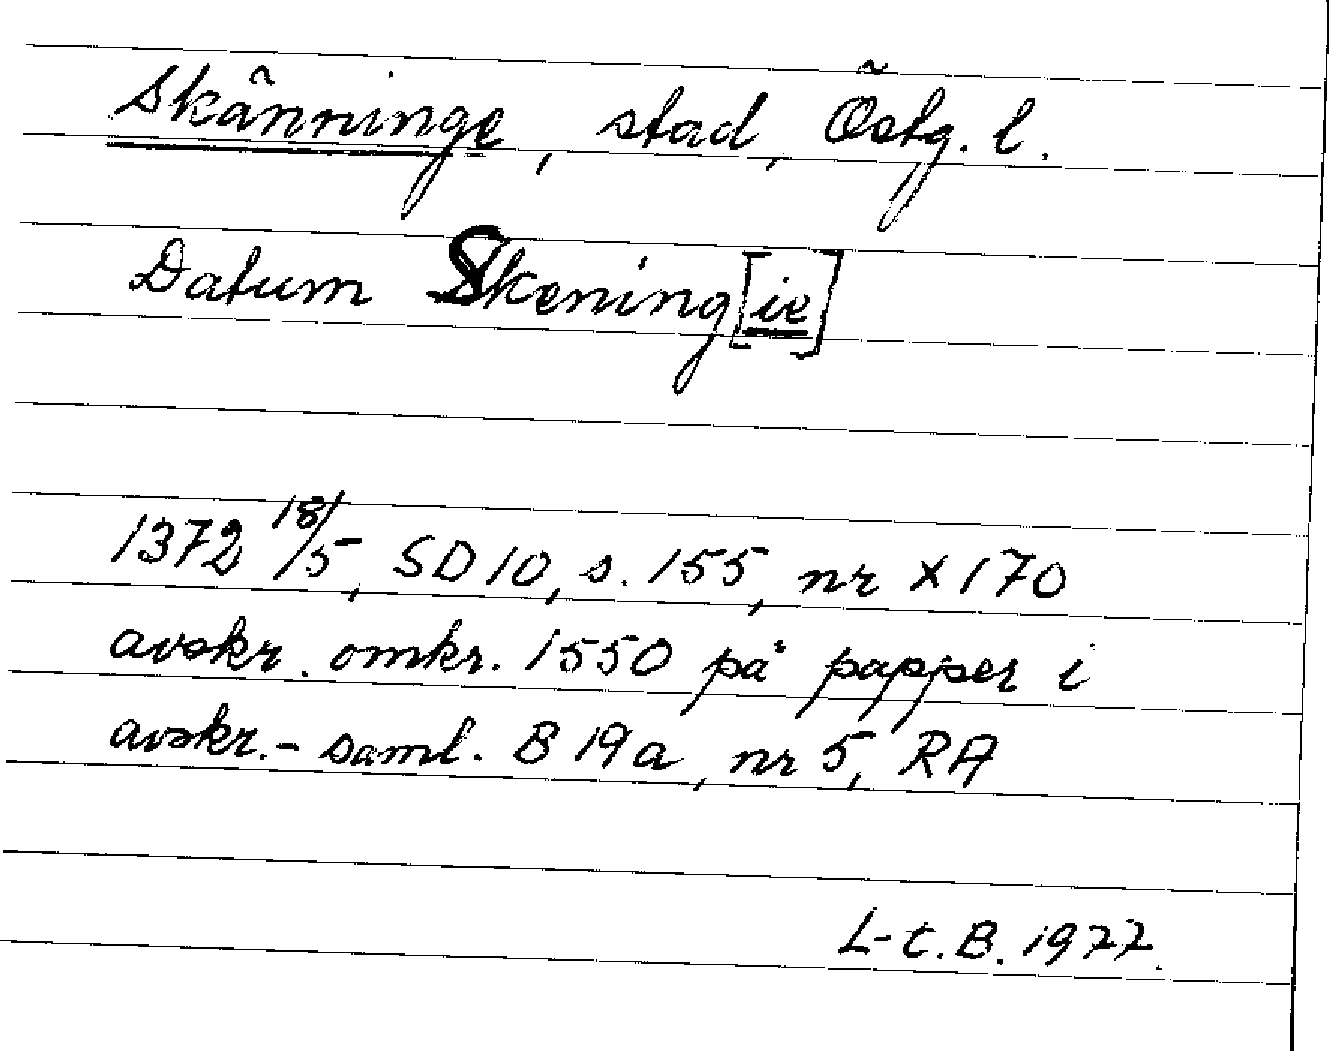 Skänninge, stad, Östg. l.
Datum Skening[ie]
1372 18/5, SD 10, s. 155, nr X 170
avskr. omkr. 1550 på papper i
avskr.- saml. B 19a, nr 5, RA
L-t. B. 1977.